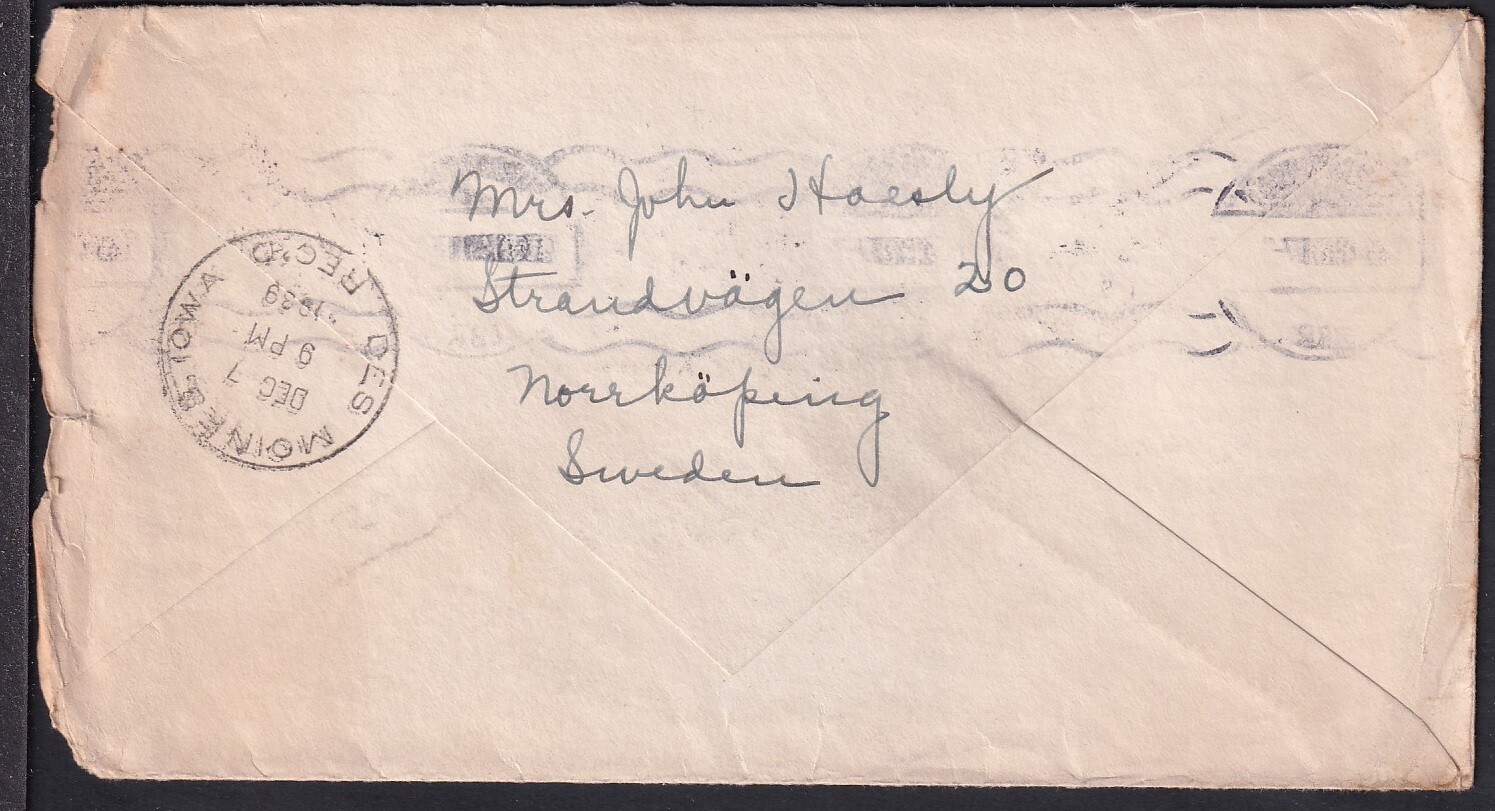 Mrs. John Haesly
Strandvägen 20
Norrköping
Sweden
DES MOINES, IOWA
REC'D
DEC 7
9 PM
1939